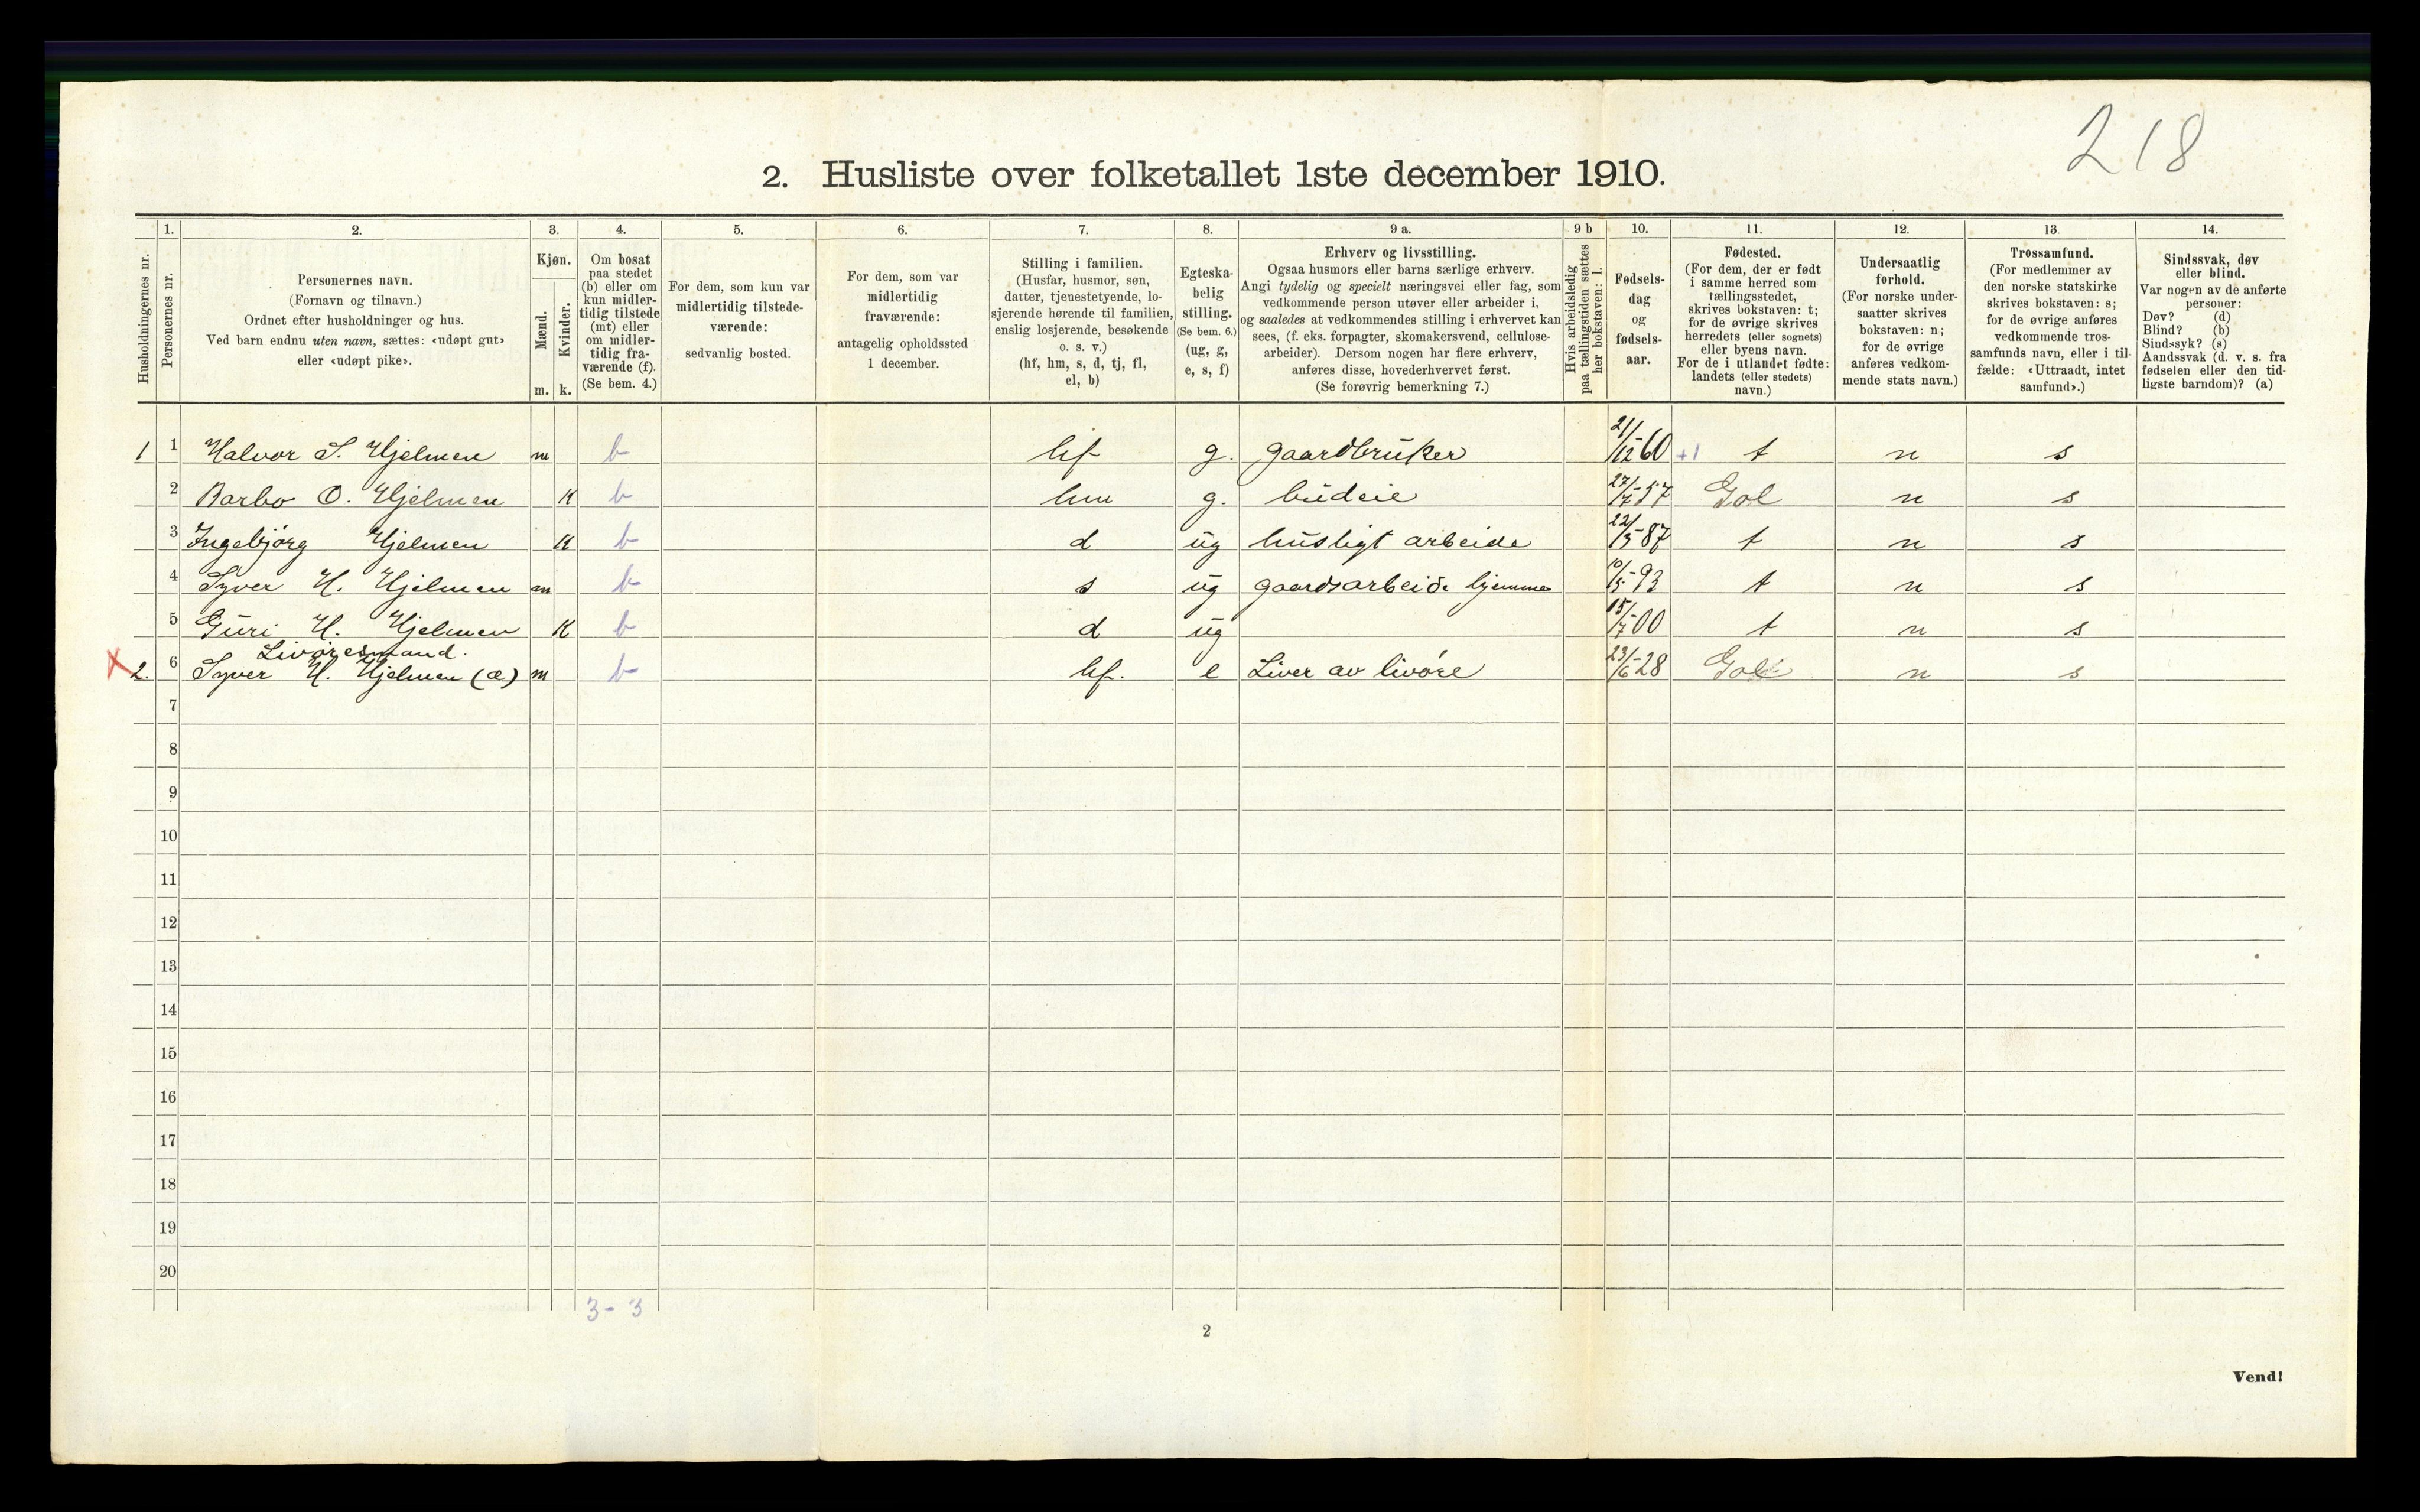 218
2. Husliste over folketallet 1ste december 1910.
1. 2. 3. 4. 5. 6. 7. 8. 9 a. 9 b 10. 11. 12. 13. 14.
Husholdningernes nr.
Personernes nr.
Personernes navn.
(Fornavn og tilnavn.)
Ordnet efter husholdninger og hus.
Ved barn endnu uten navn, sættes: «udøpt gut»
eller «udøpt pike».
Kjøn.
Mænd.
Kvinder.
m. k.
Om bosat
paa stedet
(b) eller om
kun midler-
tidig tilstede
(mt) eller
om midler-
tidig fra-
værende (f).
(Se bem. 4.)
For dem, som kun var
midlertidig tilstede-
værende:
sedvanlig bosted.
For dem, som var
midlertidig
fraværende:
antagelig opholdssted
1 december.
Stilling i familien.
(Husfar, husmor, søn,
datter, tjenestetyende, lo-
sjerende hørende til familien,
enslig losjerende, besøkende
o. s. v.)
(hf, hm, s, d, tj, fl,
el, b)
Egteska-
belig
stilling.
(Se bem. 6.)
(ug, g,
e, s, f)
Erhverv og livsstilling.
Ogsaa husmors eller barns særlige erhverv.
Angi tydelig og specielt næringsvei eller fag, som
vedkommende person utøver eller arbeider i,
og saaledes at vedkommendes stilling i erhvervet kan
sees, (f. eks. forpagter, skomakersvend, cellulose-
arbeider). Dersom nogen har flere erhverv,
anføres disse, hovederhvervet først.
(Se forøvrig bemerkning 7.)
Hvis arbeidsledig
paa tællingstiden sættes
her bokstaven: l.
Fødsels-
dag
og
fødsels-
aar.
Fødested.
(For dem, der er født
i samme herred som
tællingsstedet,
skrives bokstaven: t;
for de øvrige skrives
herredets (eller sognets)
eller byens navn.
For de i utlandet fødte:
landets (eller stedets)
navn.)
Undersaatlig
forhold.
(For norske under-
saatter skrives
bokstaven: n;
for de øvrige
anføres vedkom-
mende stats navn.)
Trossamfund.
(For medlemmer av
den norske statskirke
skrives bokstaven: s;
for de øvrige anføres
vedkommende tros-
samfunds navn, eller i til-
fælde: «Uttraadt, intet
samfund».)
Sindssvak, døv
eller blind.
Var nogen av de anførte
personer:
Døv? (d)
Blind? (b)
Sindssyk? (s)
Aandssvak (d. v. s. fra
fødselen eller den tid-
ligste barndom)? (a)
1 1 Halvor S. Hjelmen m b hf g. gaardbruker 21/12-60 +1 t n s
2 Barbo O. Hjelmen K b hm g. budeie 27/7-57 Gol n s
3 Ingebjörg Hjelmen K b d ug husligt arbeide 22/5-87 t n s
4 Syver H. Hjelmen m b s ug gaardsarbeide hjemme 10/5-93 t n s
5 Guri H. Hjelmen K b d ug 15/7-00 t n s
Livöresmand.
X 2. 6 Syver H. Hjelmen (æ) m b hf. e Liver av livöre 23/6-28 Gol n s
7
8
9
10
11
12
13
14
15
16
17
18
19
20
3 - 3
2
Vend!